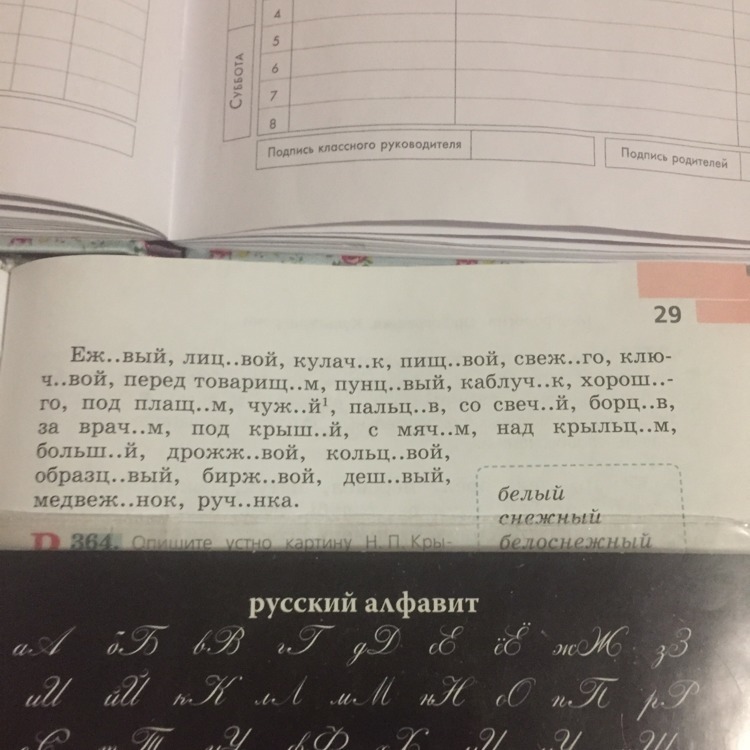 4
5
6
7
8
СУББОТА
Подпись классного руководителя
Подпись родителей
29
Еж..вый, лиц..вой, кулач..к, пищ..вой, свеж..го, клю-
ч..вой, перед товарищ..м, пунц..вый, каблуч..к, хорош..-
го, под плащ..м, чуж..й¹, пальц..в, со свеч..й, борц..в,
за врач..м, под крыш..й, с мяч..м, над крыльц..м,
больш..й, дрожж..вой, кольц..вой,
образц..вый, бирж..вой, деш..вый,
медвеж..нок, руч..нка.
белый
снежный
белоснежный
364. Опишите устно картину Н. П. Кры-
русский алфавит
аА бБ вВ гГ дД еЕ ёЁ жЖ зЗ
иИ йЙ кК лЛ мМ нН оО пП рР